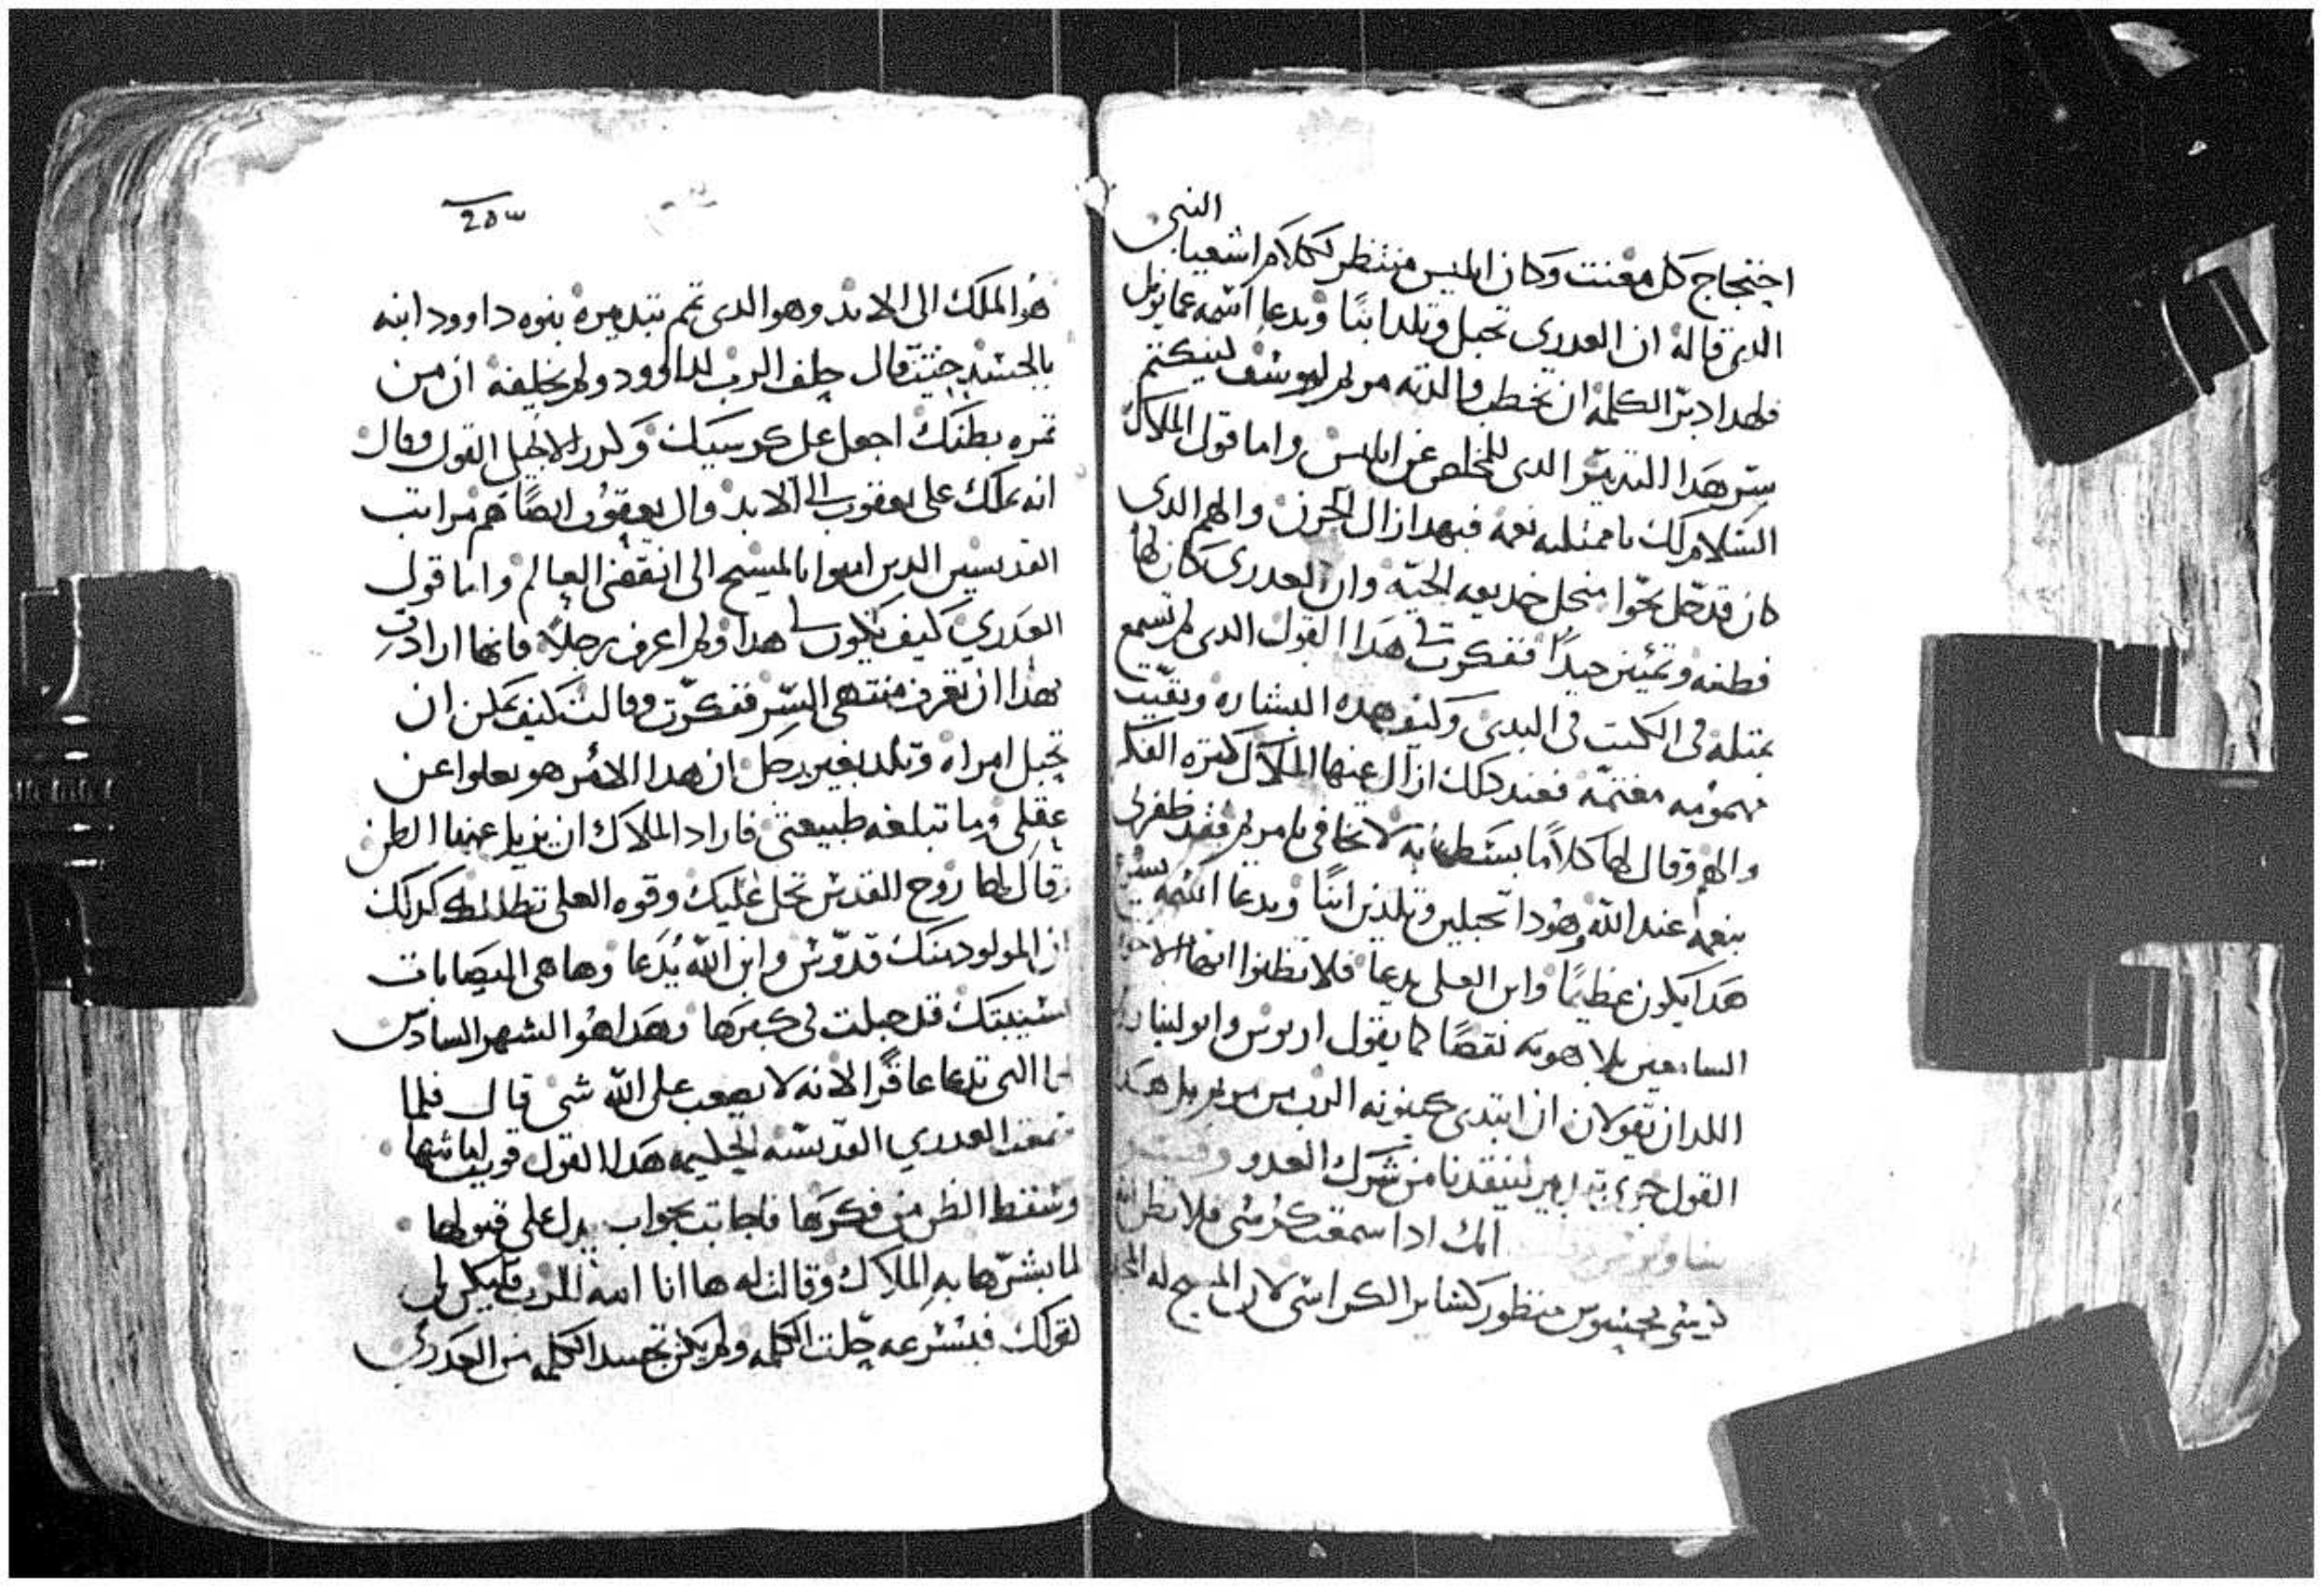 النبي
احتجاج كل معنت وكان ابليس منتظر لكلام اشعيا
الدي قاله ان العدري تحبل وتلد ابنا ويدعا اسمه عمانويل
فلهدا دبر الكلمة ان تخطب والدته مريم ليوسف لينكتم
ستر هدا التدبير الدي للمخلص عن ابليس واما قول الملاك
السلام لك يا ممتليه نعمه فبهدا ازال الحزن والهم الدي
كان قد حل بحوا من خديعه الحيه وان العدري كان لها
فطنه وتمييز جيدا ففكرت هدا القول الدي لم تسمع
بمتله في الكتب في البدي وكيف هده البشاره وبقيت
مهمومه مغتمه فعند دلك ازال عنها الملاك كتره الفكر
والهم وقال لها كلاما بسطها به لا تخافي يا مريم فقد ظفرتي
بنعمه عند الله وهودا تحبلين وتلدين ابنا ويدعا اسمه
هدا يكون عظيما وابن العلي يدعا فلا تظنوا ايها الاخوه
السامعين بلاهوته نقصا كما يقول اريوس وابوليناريوس
اللدان يقولان ان ابتدي كينونه الرب من مريم بل هدا
القول جري تدبير لينقدنا من شرك العدو
انك ادا سمعت كرسي فلا تظن انه
كرسي محسوس منظور كساير الكراسي لان المسيح له المجد
٢٥٣
هو الملك الى الابد وهو الدى تم بتدبيره بنوه داوود ابنه
بالجسد حيث قال حلف الرب لداوود ولم يخلفه ان من
تمره بطنك اجعل على كرسيك وكرر الانجيل القول وقال
انه يملك على يعقوب الى الابد وال يعقوب ايضا هم مراتب
القديسين الدين امنوا بالمسيح الى انقضى العالم واما قول
العدري كيف يكون هدا ولم اعرف رجلا فانها ارادت
بهدا ان تعرف منتهى السر ففكرت وقالت كيف يمكن ان
تحبل امراه وتلد بغير رجل ان هدا الامر هو يعلوا عن
عقلي وما تبلغه طبيعتي فاراد الملاك ان يزيل عنها الظن
وقال لها روح القدس تحل عليك وقوه العلي تظللك كدلك
ان المولود منك قدوس وابن الله يدعا وها هي اليصابات
نسيبتك قد حبلت في كبرها وهدا هو الشهر السادس
لها التي تدعا عاقرا لانه لا يصعب على الله شي قال فلما
سمعت العدري القديسه الحليمه هدا القول قويت امانتها
وسقط الظن من فكرها فاجابت بجواب يدل على قبولها
لما بشرها به الملاك وقالت له ها انا امه للرب فليكن لي
لقولك فبسرعه حلت الكلمه ولم يكن تجسد الكلمه من العدري